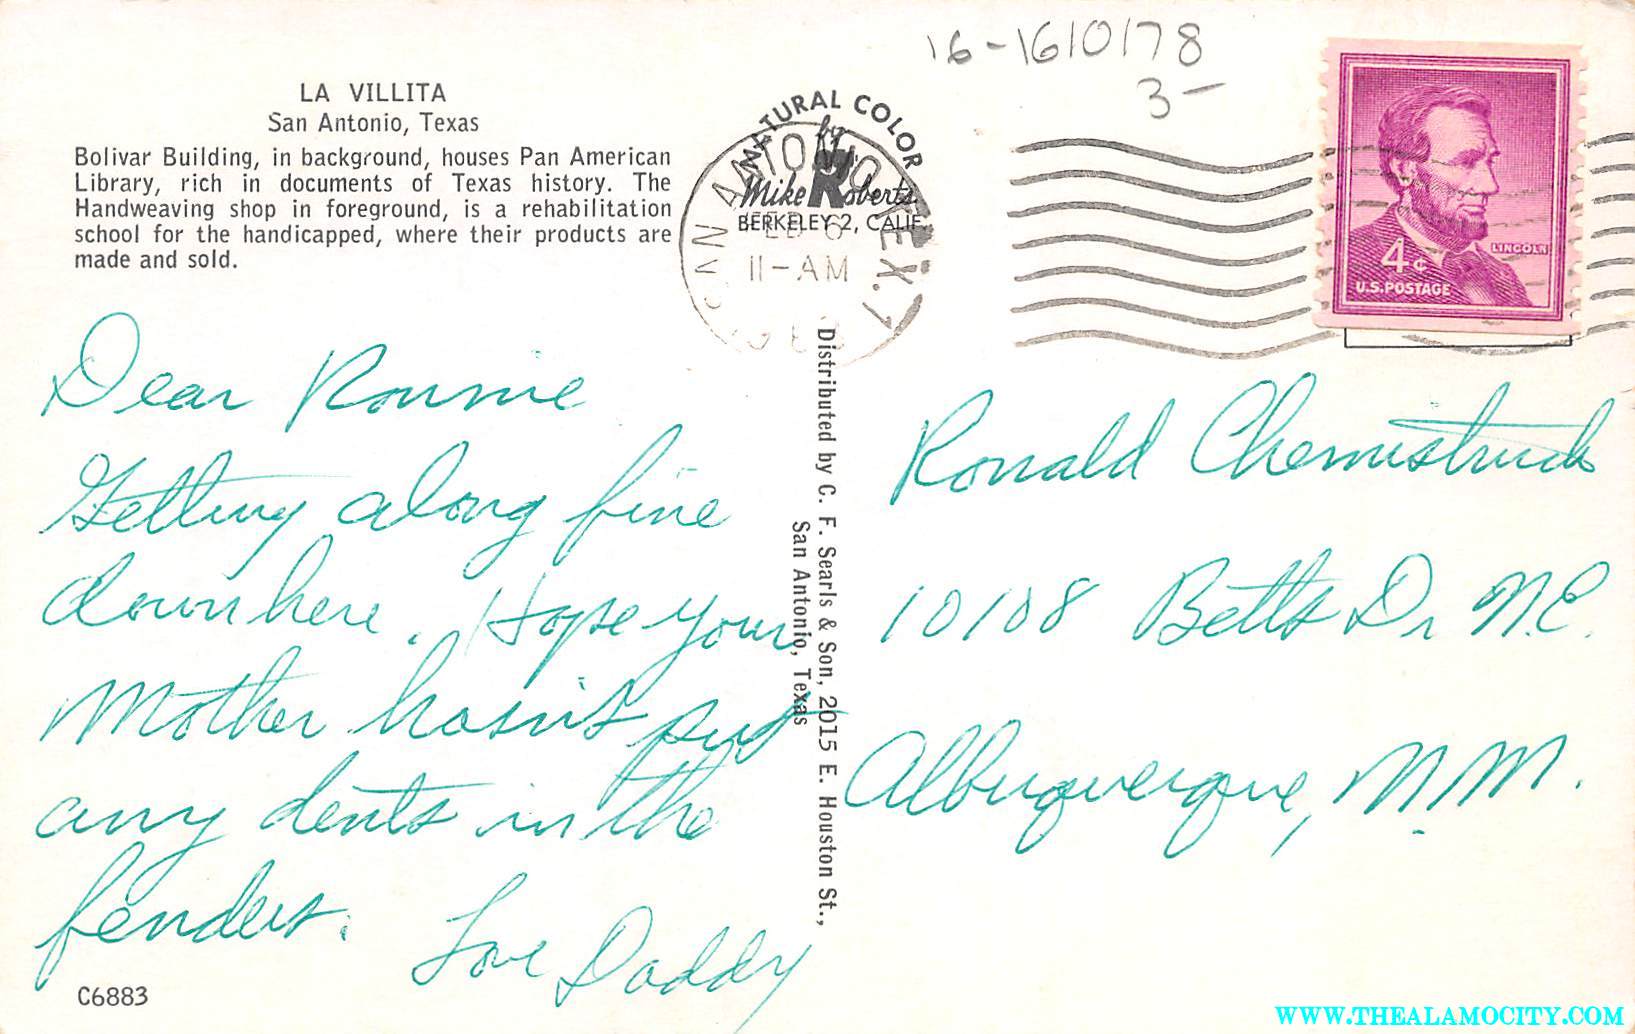 16-1610178
3-
LA VILLITA
San Antonio, Texas
Bolivar Building, in background, houses Pan American
Library, rich in documents of Texas history. The
Handweaving shop in foreground, is a rehabilitation
school for the handicapped, where their products are
made and sold.
NATURAL COLOR
by
Mike Roberts
BERKELEY 2, CALIF.
SAN ANTONIO
TEX. 7
FEB 6
11-AM
LINCOLN
4¢
U.S. POSTAGE
Dear Ronnie
Getting along fine
down here. Hope your
Mother hasn't put
any dents in the
fenders.
Love Daddy
C6883
Distributed by C. F. Searls & Son, 2015 E. Houston St.,
San Antonio, Texas
Ronald
10108 Betts Dr N.E.
Albuquerque, N.M.
WWW.THEALAMOCITY.COM